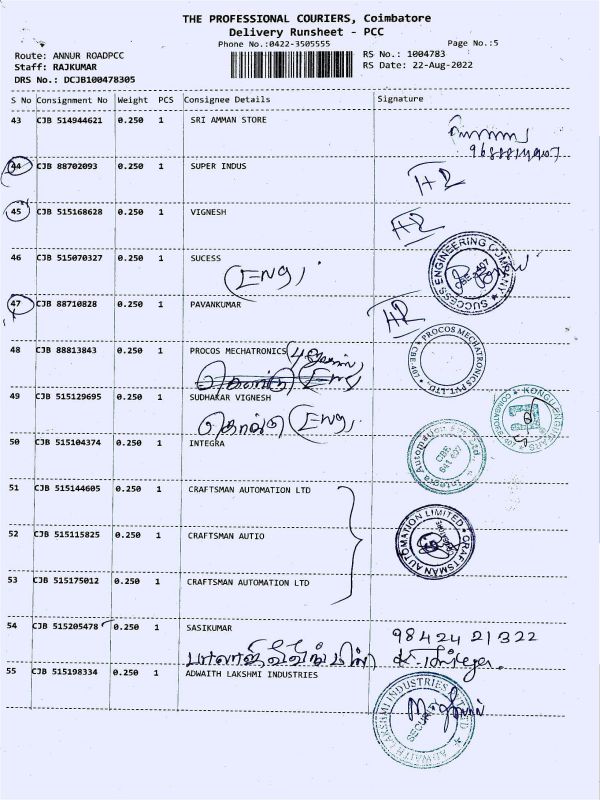 THE PROFESSIONAL COURIERS, Coimbatore
Delivery Runsheet - PCC
Phone No.:0422-3505555 Page No.:5
Route: ANNUR ROADPCC RS No.: 1004783
Staff: RAJKUMAR RS Date: 22-Aug-2022
DRS No.: DCJB100478305
S No Consignment No Weight PCS Consignee Details Signature
43 CJB 514944621 0.250 1 SRI AMMAN STORE
44 CJB 88702093 0.250 1 SUPER INDUS
45 CJB 515168628 0.250 1 VIGNESH
46 CJB 515070327 0.250 1 SUCESS
(ENG)
SUCCESS ENGINEERING COMPANY
47 CJB 88710828 0.250 1 PAVANKUMAR
48 CJB 88813843 0.250 1 PROCOS MECHATRONICS
PROCOS MECHATRONICS PVT LTD, CBE-407
49 CJB 515129695 0.250 1 SUDHAKAR VIGNESH
(ENG)
50 CJB 515104374 0.250 1 INTEGRA
Integra Automation Pvt Ltd
CBE
641 407
51 CJB 515144605 0.250 1 CRAFTSMAN AUTOMATION LTD
52 CJB 515115825 0.250 1 CRAFTSMAN AUTIO
CRAFTSMAN AUTOMATION LIMITED
53 CJB 515175012 0.250 1 CRAFTSMAN AUTOMATION LTD
54 CJB 515205478 0.250 1 SASIKUMAR
98424 21322
55 CJB 515198334 0.250 1 ADWAITH LAKSHMI INDUSTRIES
ADWAITH LAKSHMI INDUSTRIES LTD
SECURITY